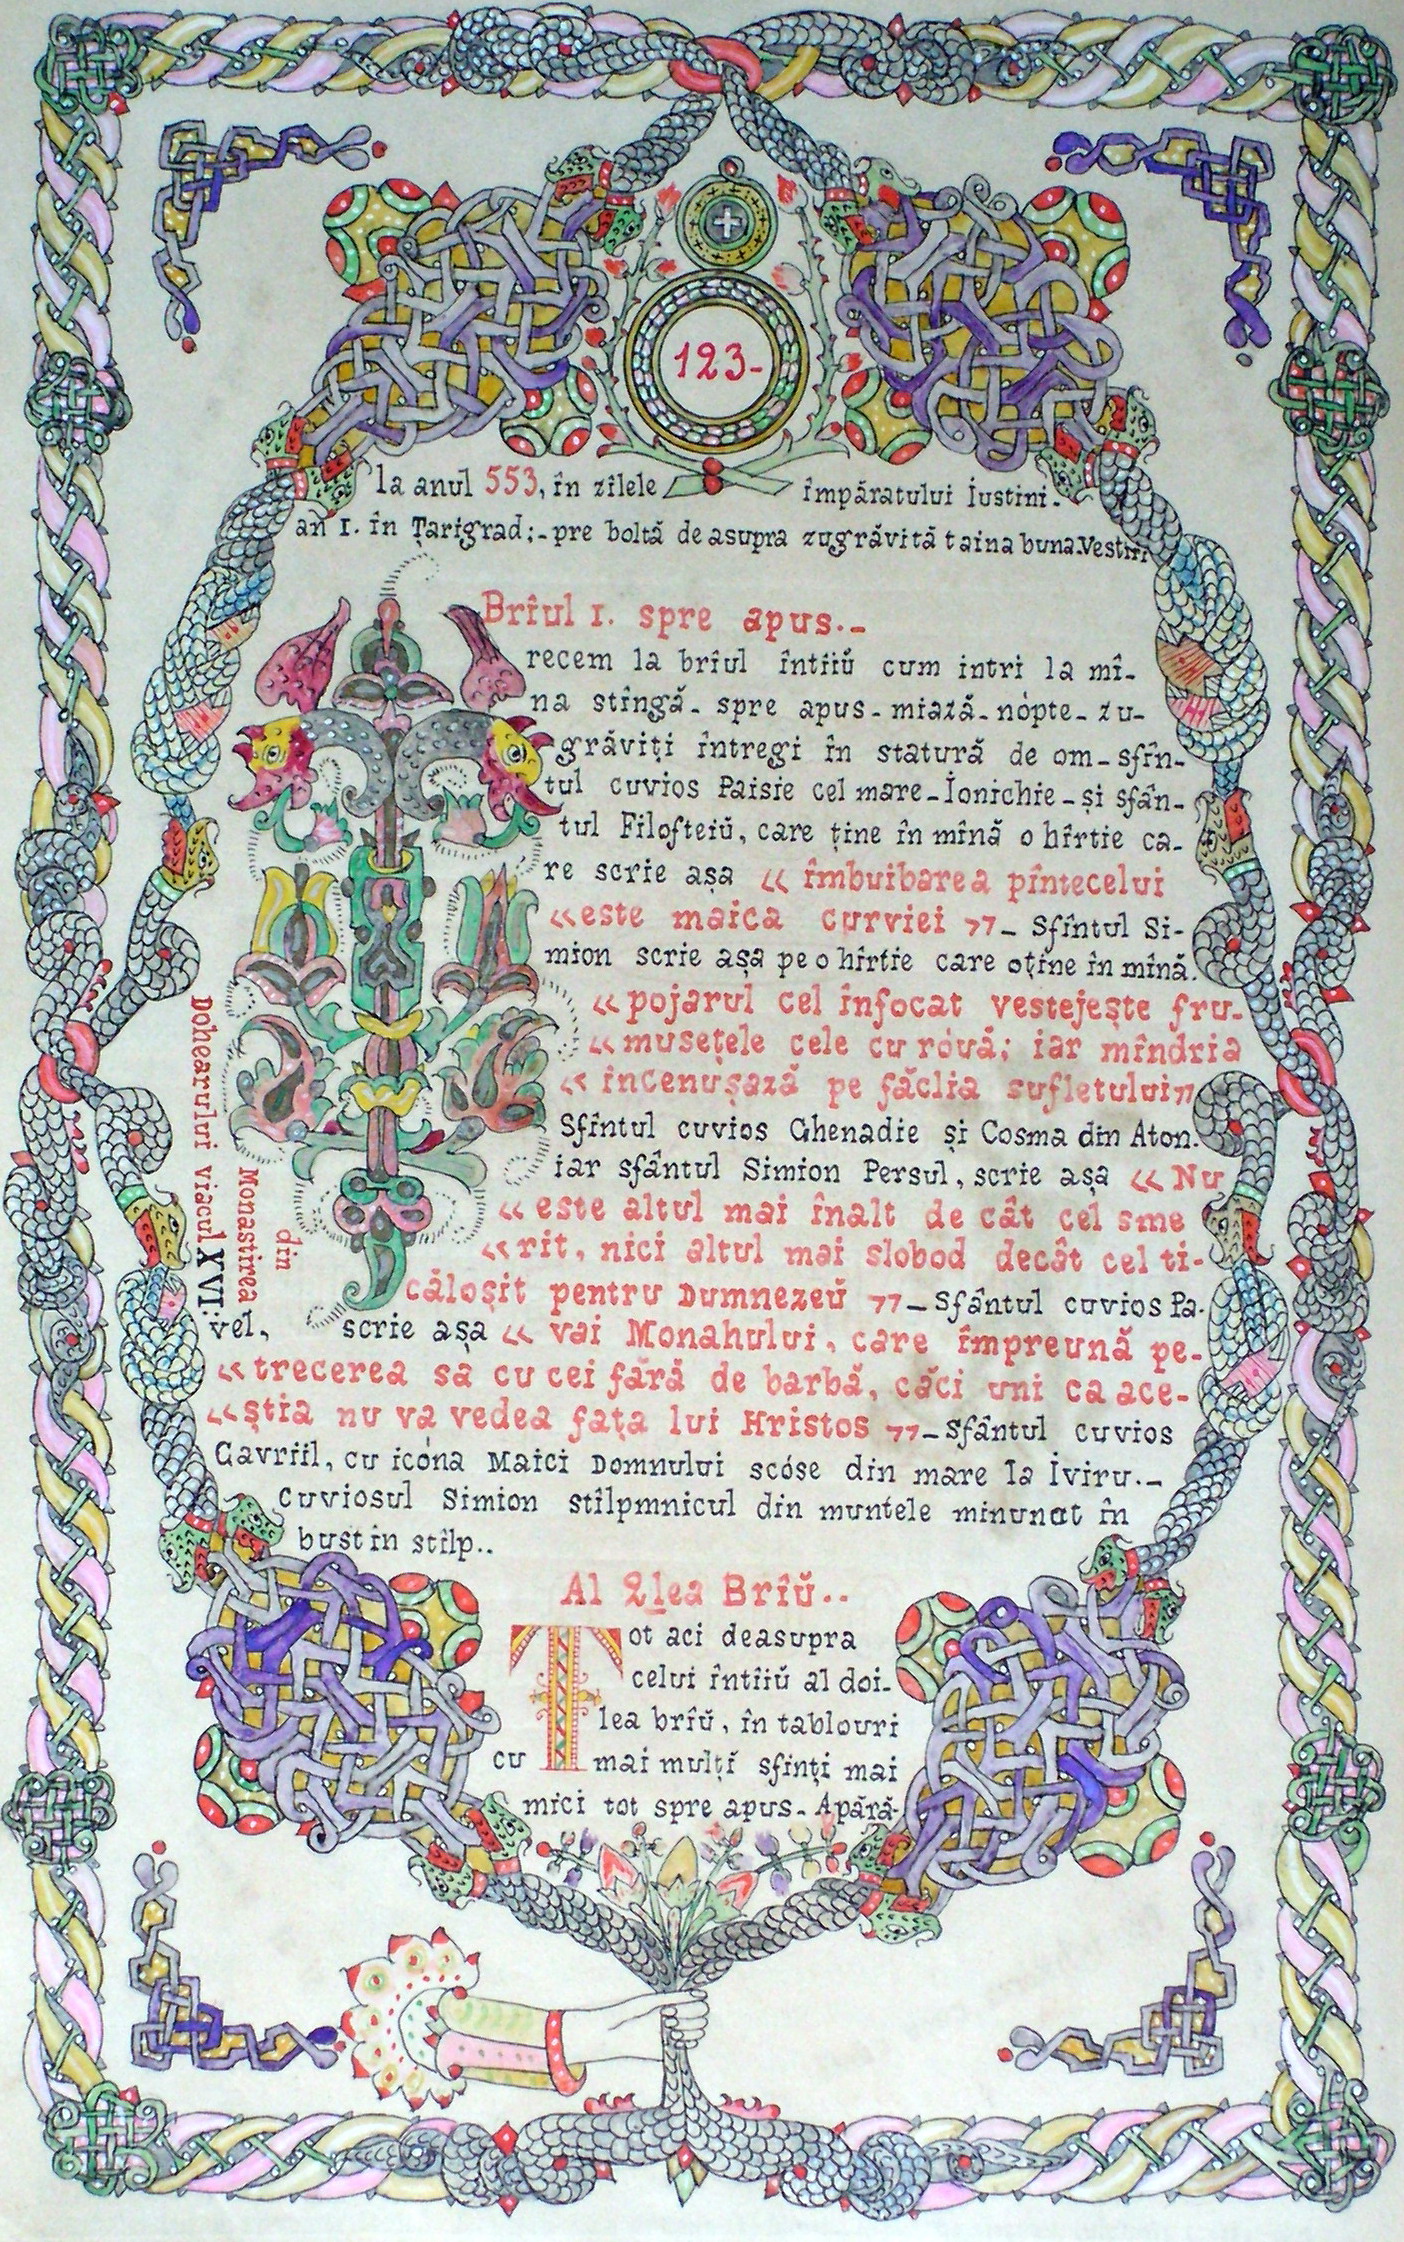 123-
la anul 553, în zilele împăratului Iustini-
an I. în Țarigrad;- pre boltă de asupra zugrăvită taina buna Vestiri
Brîul 1. spre apus.-
Trecem la brîul întîiŭ cum intri la mî-
na stîngă- spre apus- miază- nópte- zu-
grăviți întregi în statură de om- sfîn-
tul cuvios Paisie cel mare- Ionichie- și sfân-
tul Filofteiŭ, care ține în mînă o hîrtie ca-
re scrie așa « îmbuibarea pîntecelui
«este maica curviei »- Sfîntul Si-
mion scrie așa pe o hîrtie care oține în mînă.
«pojarul cel înfocat vestejește fru-
«musețele cele cu róuă; iar mîndria
« incenușază pe făclia sufletului»
Sfîntul cuvios Ghenadie și Cosma din Aton.
iar sfântul Simion Persul, scrie așa « Nu
« este altul mai înalt de cât cel sme
« rit, nici altul mai slobod decât cel ti-
căloșit pentru Dumnezeŭ »- Sfântul cuvios Pa-
vel, scrie așa « vai Monahului, care împreună pe-
«trecerea sa cu cei fără de barbă, căci uni ca ace-
«știa nu va vedea fața lui Hristos »- Sfântul cuvios
Gavriil, cu icóna Maici Domnului scóse din mare la Iviru.-
Cuviosul Simion stîlpmnicul din muntele minunat în
bust in stîlp..
Al 2lea Brîŭ..
Tot aci deasupra
celui întîiŭ al doi-
lea brîŭ, în tablouri
cu mai mulți sfinți mai
mici tot spre apus- Apără-
din
Monastirea
Dohearului viacul XVI: